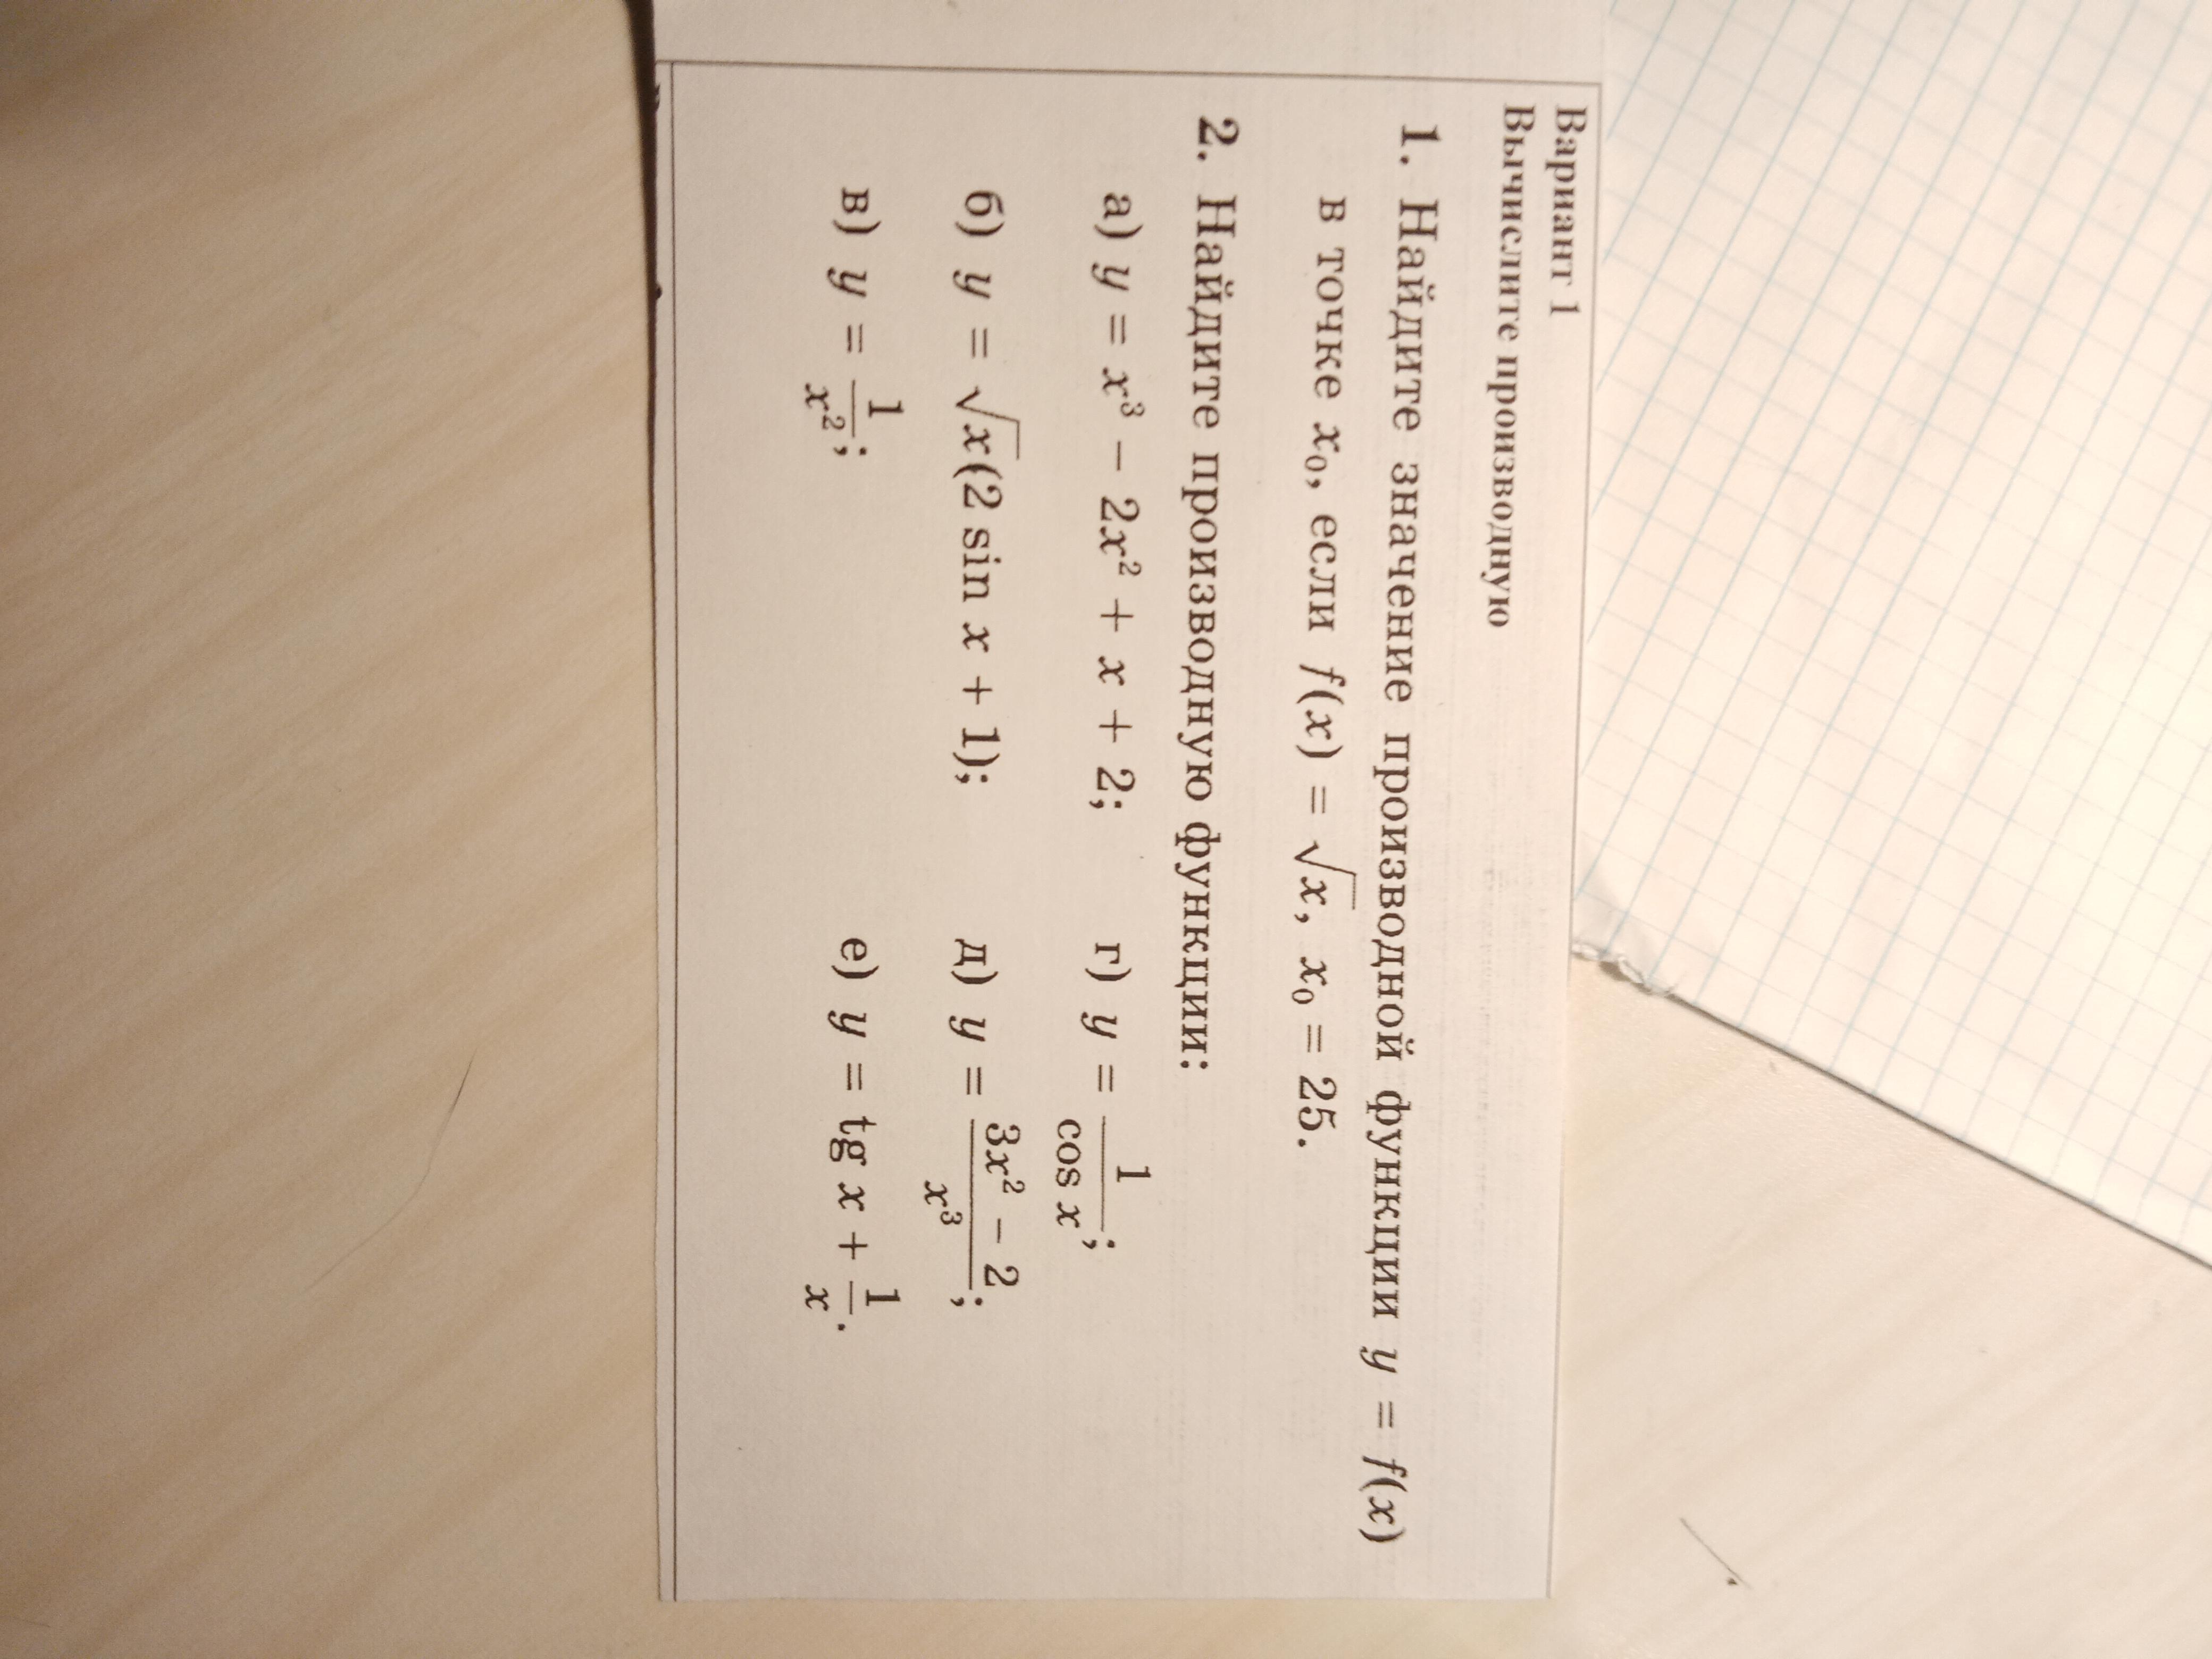 Вариант 1
Вычислите производную
1. Найдите значение производной функции y = f(x)
в точке x₀, если f(x) = √x, x₀ = 25.
2. Найдите производную функции:
а) y = x³ − 2x² + x + 2;
б) y = √x(2 sin x + 1);
в) y = 1/x²;
г) y = 1/cos x;
д) y = (3x² − 2)/x³;
е) y = tg x + 1/x.